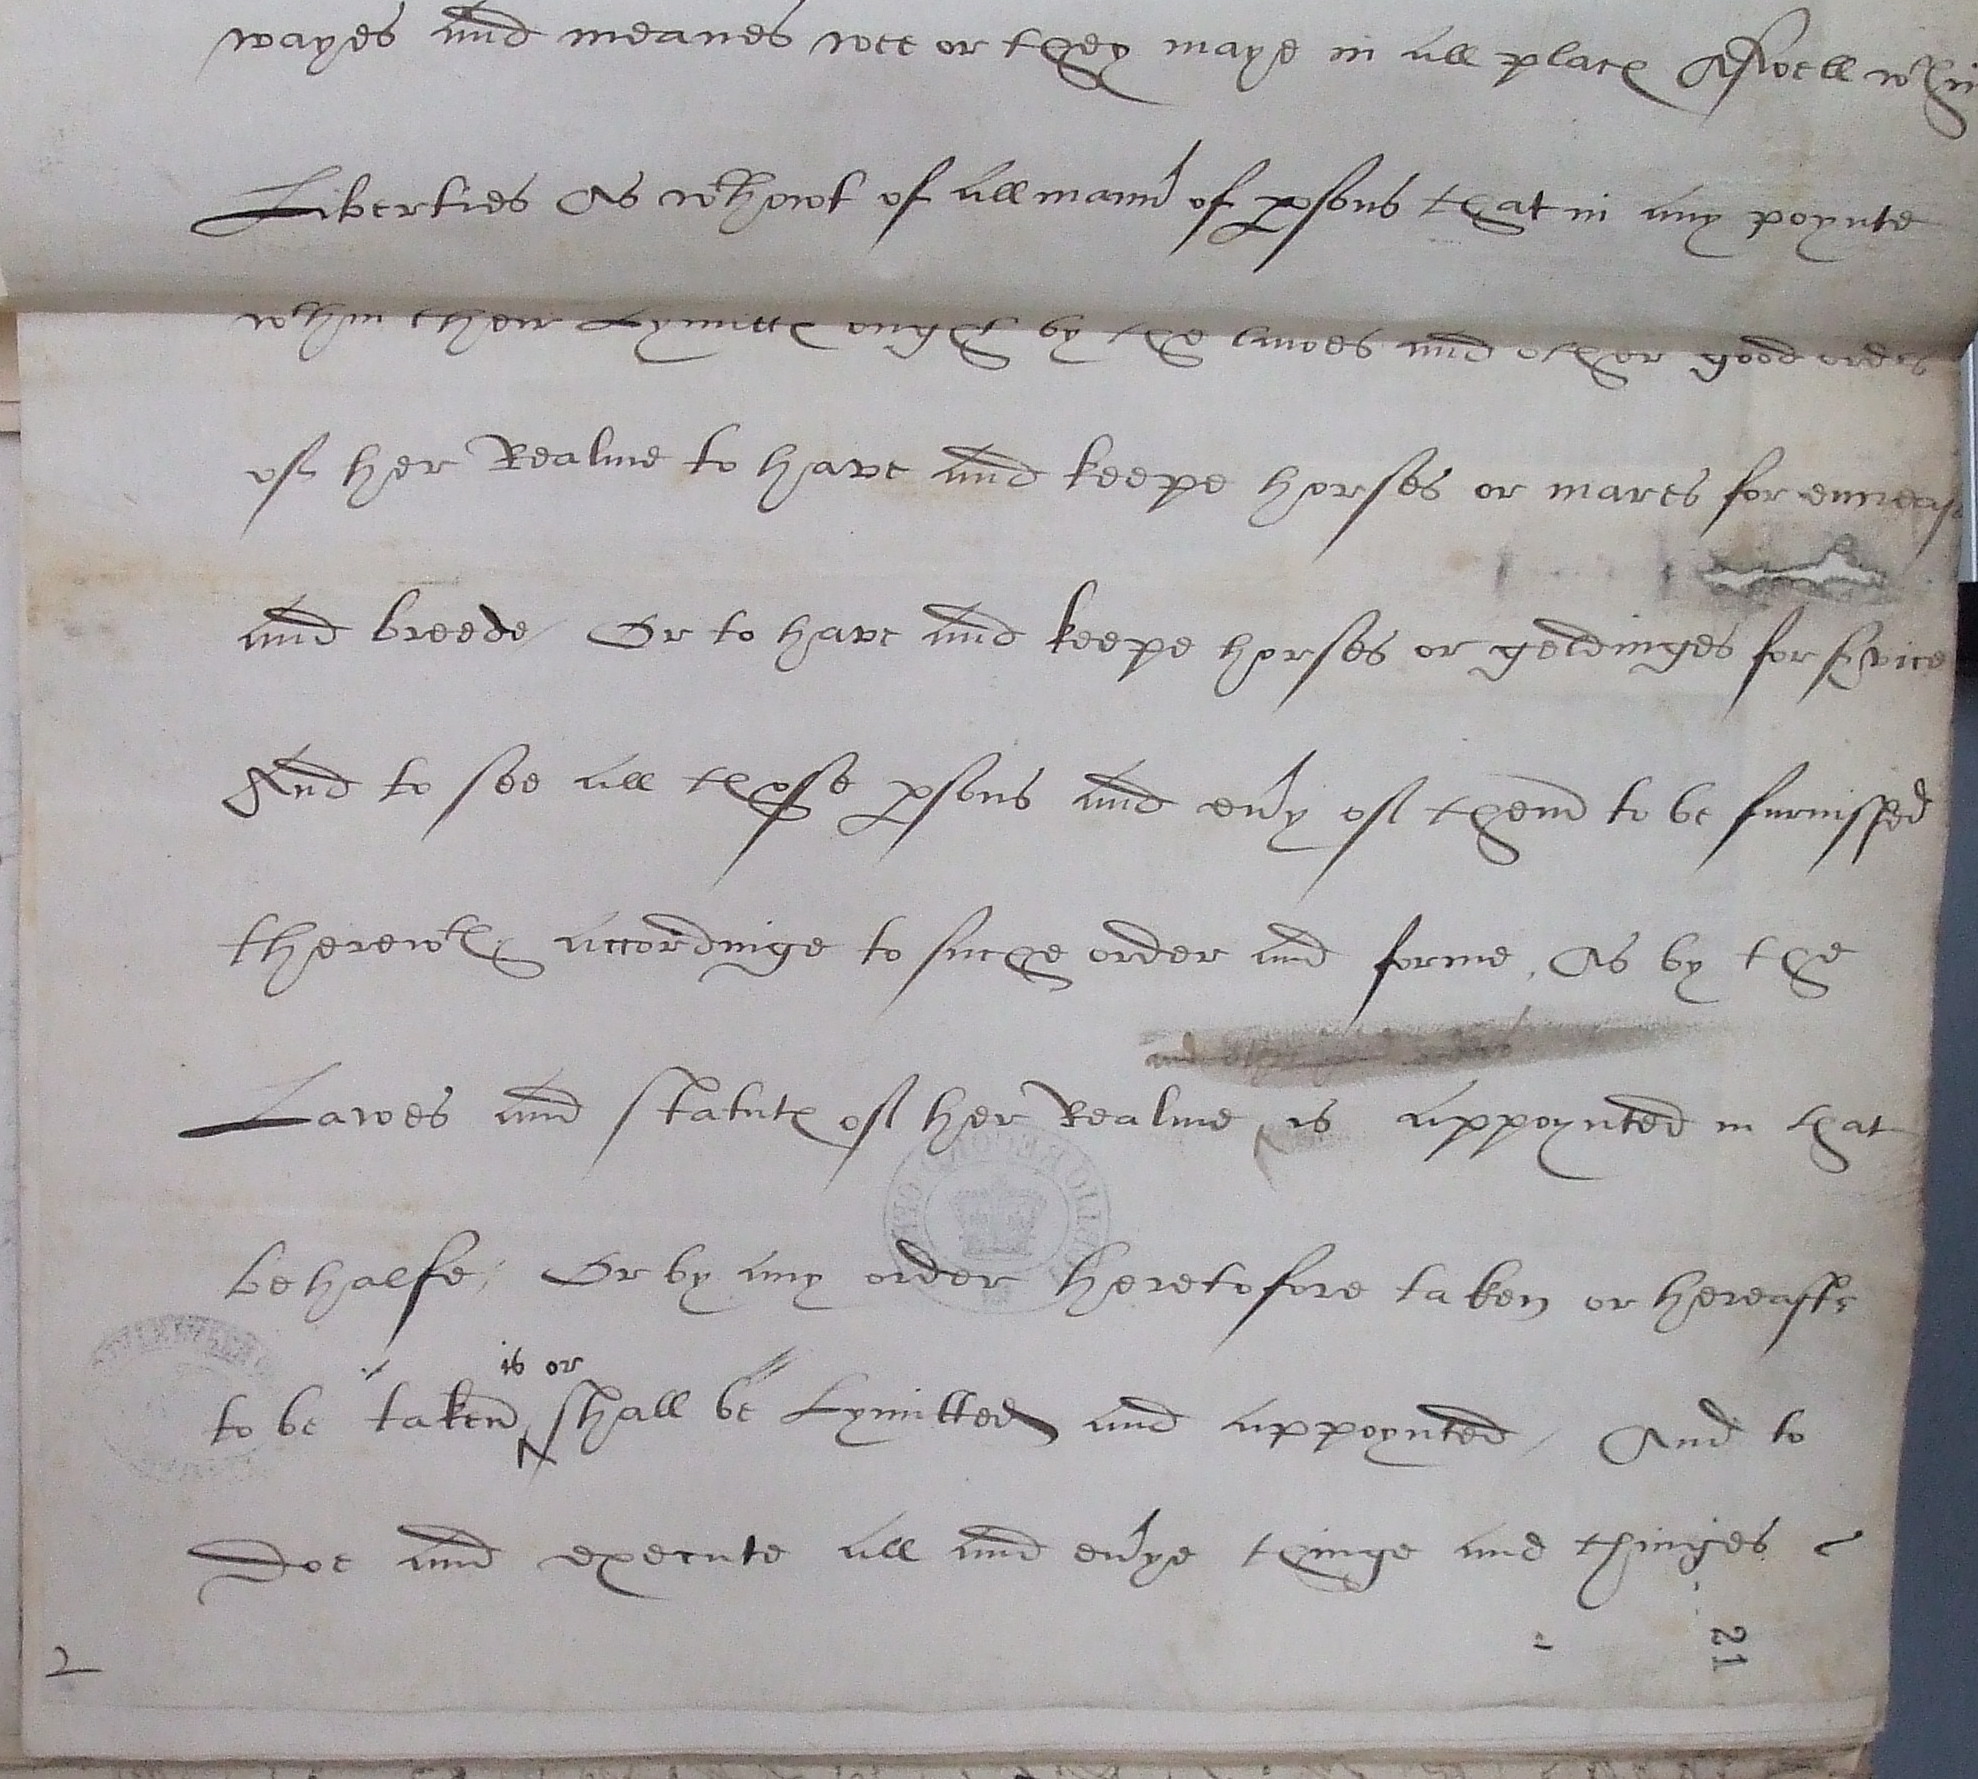 wayes and meanes wee or they maye in all places Aswell wthin
Liberties as wthowt of all mannr of psons that in any poynte
wthin their Lymittes ought by the lawes and other good orders
of her Realme to have and keepe horses or mares for encrease
and breede / Or to have and keepe horses or geldinges for service
And to see all those psons and euy of them to be furnisshed
therewth accordinge to suche order and forme, as by the
and other good orders
Lawes and statutes of her Realme is appoynted in that
behalfe, Or by any order heretofore taken or hereafter
is or
to be taken shall be Lymitted and appoynted / And to
Doe and execute all and euye thinge and thinges
2
21
PUBLIC RECORD OFFICE